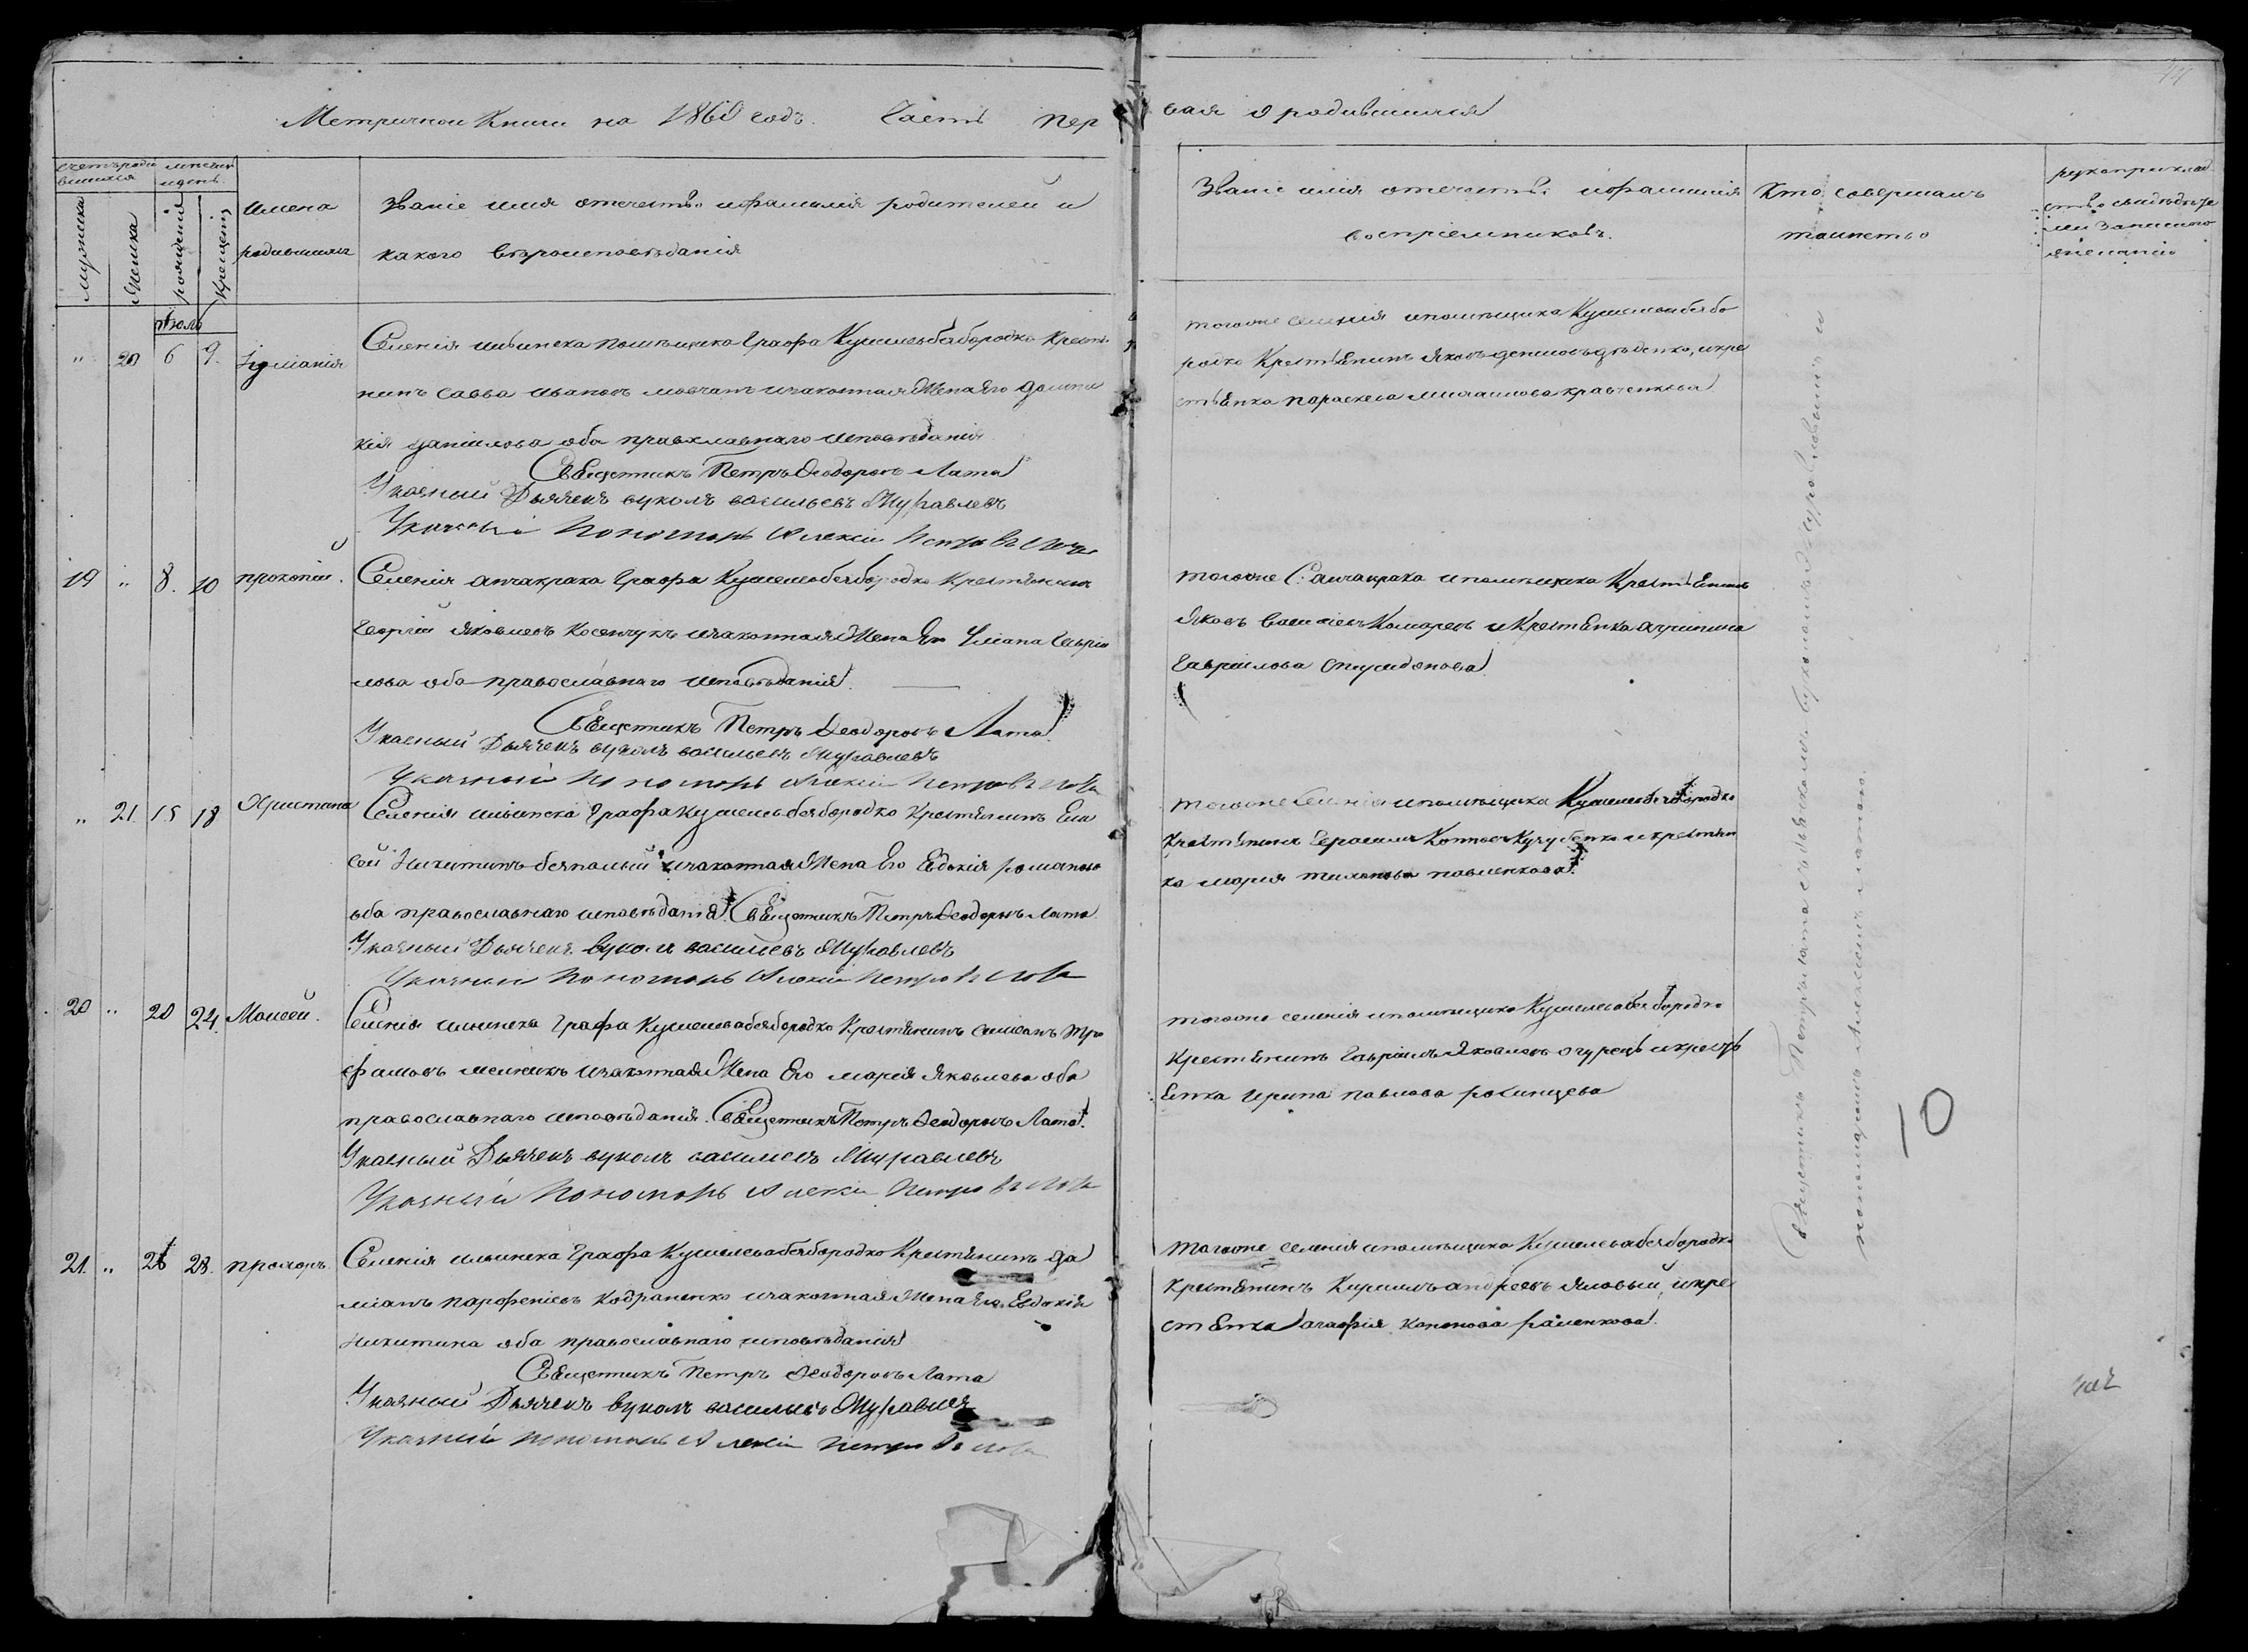 Метричнои Книги на 1860 годъ. Часть пер
вая о родившихся
счетъ роди
вшихся
мѣсяцъ
и день.
мужеска
Женска
рожденія
Крещенія
имена
родившихъ
Званіе имя отечество и фамилія родителей и
какого вѣроисповѣданія
Званіе имя отечество и фамилія
воспріемниковъ.
Кто совершалъ
таинство
рукоприклад
ство свидѣтеле
Іюль
" 20 6 9.
Іуліанія
Селенія ильинска помѣщика Графа Кушелева безбородко Крестья
нинъ Савва ивановъ мовчанъ и законная Жена Его домни
кія Даніилова оба православнаго исповѣданія
Священникъ Петръ Ѳеодоровъ Лата
Указный Дьячекъ вуколъ васильевъ Журавлевъ
Указный Пономарь Алексій Петровъ
тогоже селенія и помѣщика Кушелева безбо
родко Крестьянинъ Яковъ денисовъ дѣденко, и кре
стьянка параскева михаилова кравченкова
19 " 8. 10
прокопій.
Селенія анчакрака Графа Кушелева безбородко Крестьянинъ
Георгій Яковлевъ Косенчукъ и законная Жена Его Уліана Гавріи
лова оба православнаго исповѣданія.
Священникъ Петръ Ѳеодоровъ Лата
Указный Дьячекъ вуколъ васильевъ Журавлевъ
Указный Пономарь Алексій Петровъ
тогоже С. анчакрака и помѣщика Крестьянинъ
Яковъ Комаревъ и Крестьянка агрипина
Гавріилова
" 21. 15 18
Христина
Селенія ильинска Графа Кушелева безбородко Крестьянинъ Ели
сей Никитинъ безпалый и законная Жена Его Евдокія романова
оба православнаго исповѣданія. Священникъ Петръ Ѳеодоровъ Лата
Указный Дьячекъ Вуколъ васильевъ Журавлевъ
Указный Пономарь Алексій Петровъ
тогоже Селенія и помѣщика Кушелева безбородко
Крестьянинъ Герасимъ и крестьян
ка марія тихонова павленкова.
20 " 20 24.
Моисей.
Селенія ильинска Графа Кушелева безбородко Крестьянинъ симеонъ тро
фимовъ мельникъ и законная Жена Его марія Яковлева оба
православнаго исповѣданія. Священникъ Петръ Ѳеодоровъ Лата.
Указный Дьячекъ вуколъ васильевъ Журавлевъ
Указный Пономарь Алексій Петровъ
тогоже селенія и помѣщика Кушелева безбородко
Крестьянинъ Гавріилъ Яковлевъ огурецъ и кресть
Янка ирина павлова
21. " 26 28.
прохоръ.
Селенія ильинска Графа Кушелева безбородко Крестьянинъ да
міанъ парфеніевъ Кодраненко и законная Жена Его Евдокія
никитина оба православнаго исповѣданія
Священникъ Петръ Ѳеодоровъ Лата
Указный Дьячекъ Вуколъ васильевъ Журавлев
Указный Пономарь Алексій Петровъ
тогоже селенія и помѣщика Кушелева безбородко
Крестьянинъ Кириллъ андреевъ Яловый, и кре
стьянка агафія кононова
Священникъ Петръ Лата съ дьячкомъ вуколомъ Журавлевымъ и
пономаремъ Алексіемъ Латою.
10